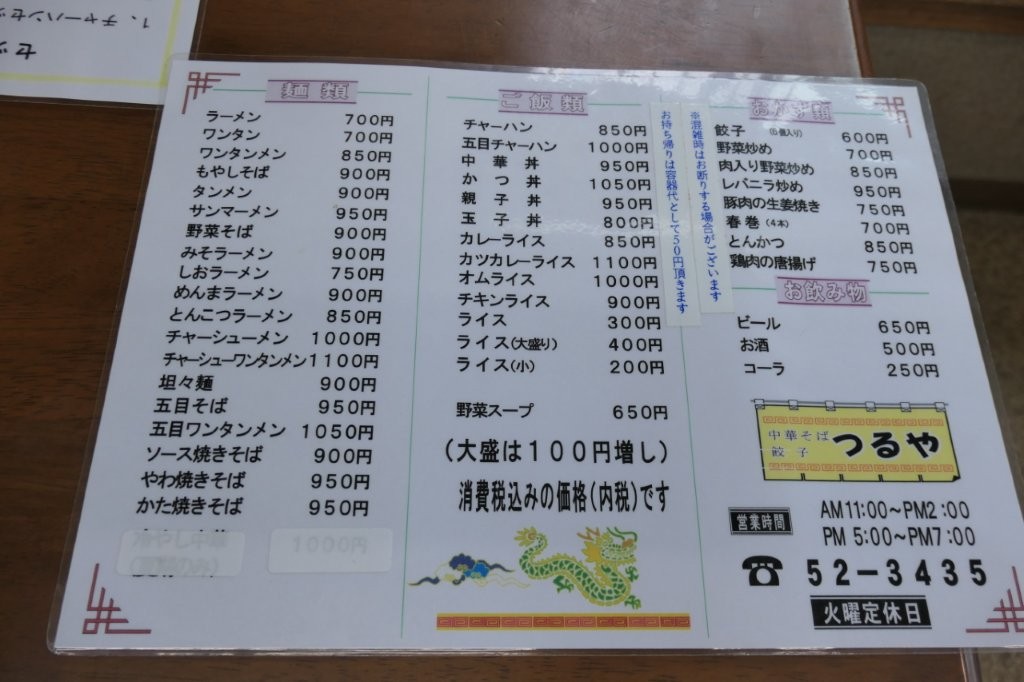 1、チャーハンセッ
セッ
麺類
ラーメン 700円
ワンタン 700円
ワンタンメン 850円
もやしそば 900円
タンメン 900円
サンマーメン 950円
野菜そば 900円
みそラーメン 900円
しおラーメン 750円
めんまラーメン 900円
とんこつラーメン 850円
チャーシューメン 1000円
チャーシューワンタンメン 1100円
坦々麺 900円
五目そば 950円
五目ワンタンメン 1050円
ソース焼きそば 900円
やわ焼きそば 950円
かた焼きそば 950円
冷やし中華 1000円
ご飯類
チャーハン 850円
五目チャーハン 1000円
中華丼 950円
かつ丼 1050円
親子丼 950円
玉子丼 800円
カレーライス 850円
カツカレーライス 1100円
オムライス 1000円
チキンライス 900円
ライス 300円
ライス(大盛り) 400円
ライス(小) 200円
野菜スープ 650円
(大盛は100円増し)
消費税込みの価格(内税)です
※混雑時はお断りする場合がございます
お持ち帰りは容器代として50円頂きます
おかず類
餃子 (6個入り) 600円
野菜炒め 700円
肉入り野菜炒め 850円
レバニラ炒め 950円
豚肉の生姜焼き 750円
春巻(4本) 700円
とんかつ 850円
鶏肉の唐揚げ 750円
お飲み物
ビール 650円
お酒 500円
コーラ 250円
中華そば
餃子
つるや
営業時間
AM11:00~PM2:00
PM 5:00~PM7:00
☎ 52-3435
火曜定休日